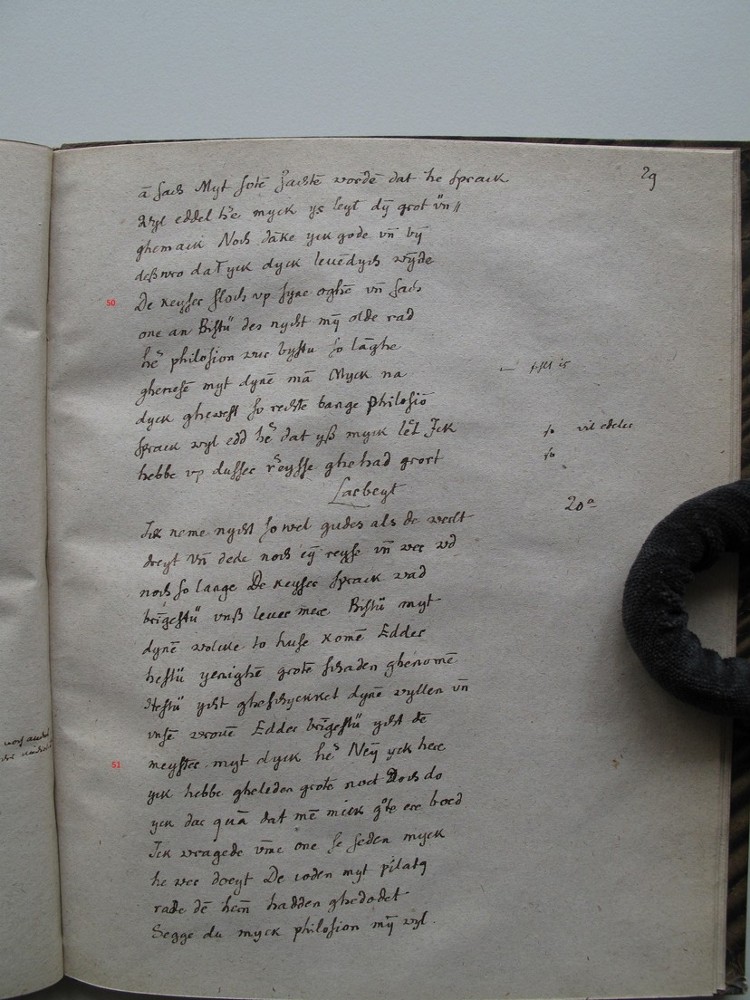 29
ā sach Myt sote sachte wordē dat he sprack
wyl eddel he myck ys leyt dy grot vn̄
ghemack Noch dāke yck gode vn̄ by
deßwo dat yck dyck leuēdych wyde
50 De keyser sloch vp syne oghē vn̄ sach
one an Bistu des nycht my olde rad
he philosion wur bystu so lāghe
ghewesē myt dynē mā Myck na
dyck ghewest so rechte bange philosio
sprack wyl edd he dat yß myck let Ick
hebbe vp dusser reysse ghehad grot
Larbeyt
20
Ick neme nycht so wel gudes als de werlt
dreyt vn̄ dede noch ey reyse vn̄ wer
noch so lange De keyser sprack wad
brīgestu vnß leuer mere Bistu myt
dynē wolcke to huse komē Edder
hestu yenighē grotē schaden ghenomē
Hestu ycht gheschyckket dynē wyllen vn̄
vnsē vrouē Edder brīgestu ycht dē
51 meyster myt dyck he Ney yck here
yck hebbe gheleden grotē not Doch do
yck dar quā dat mē mick ere boed
Ick vragede vme one se seden myck
he wer doeyt De ioden myt pilato
rade dē hern hadden ghedodet
Segge du myck philosion my wyl